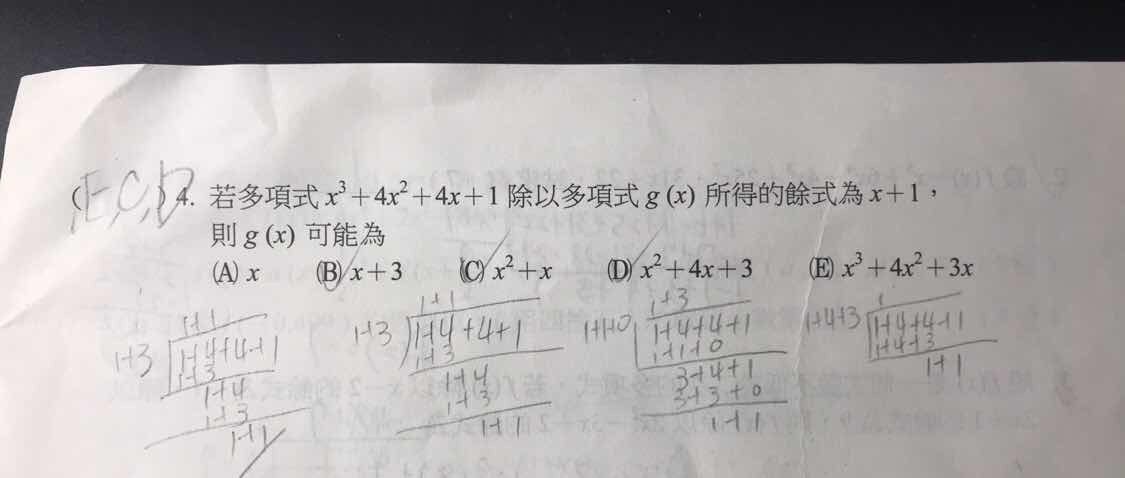 (E,C,D) 4. 若多項式 x³+4x²+4x+1 除以多項式 g (x) 所得的餘式為 x+1，
則 g (x) 可能為
(A) x (B) x+3 (C) x²+x (D) x²+4x+3 (E) x³+4x²+3x
1+1
1+3 1+4+4+1
1+3
1+4
1+3
1+1
1+1
1+3 1+4+4+1
1+3
1+4
1+3
1+1
1+3
1+1+0 1+4+4+1
1+1+0
3+4+1
3+3+0
1+1
1
1+4+3 1+4+4+1
1+4+3
1+1